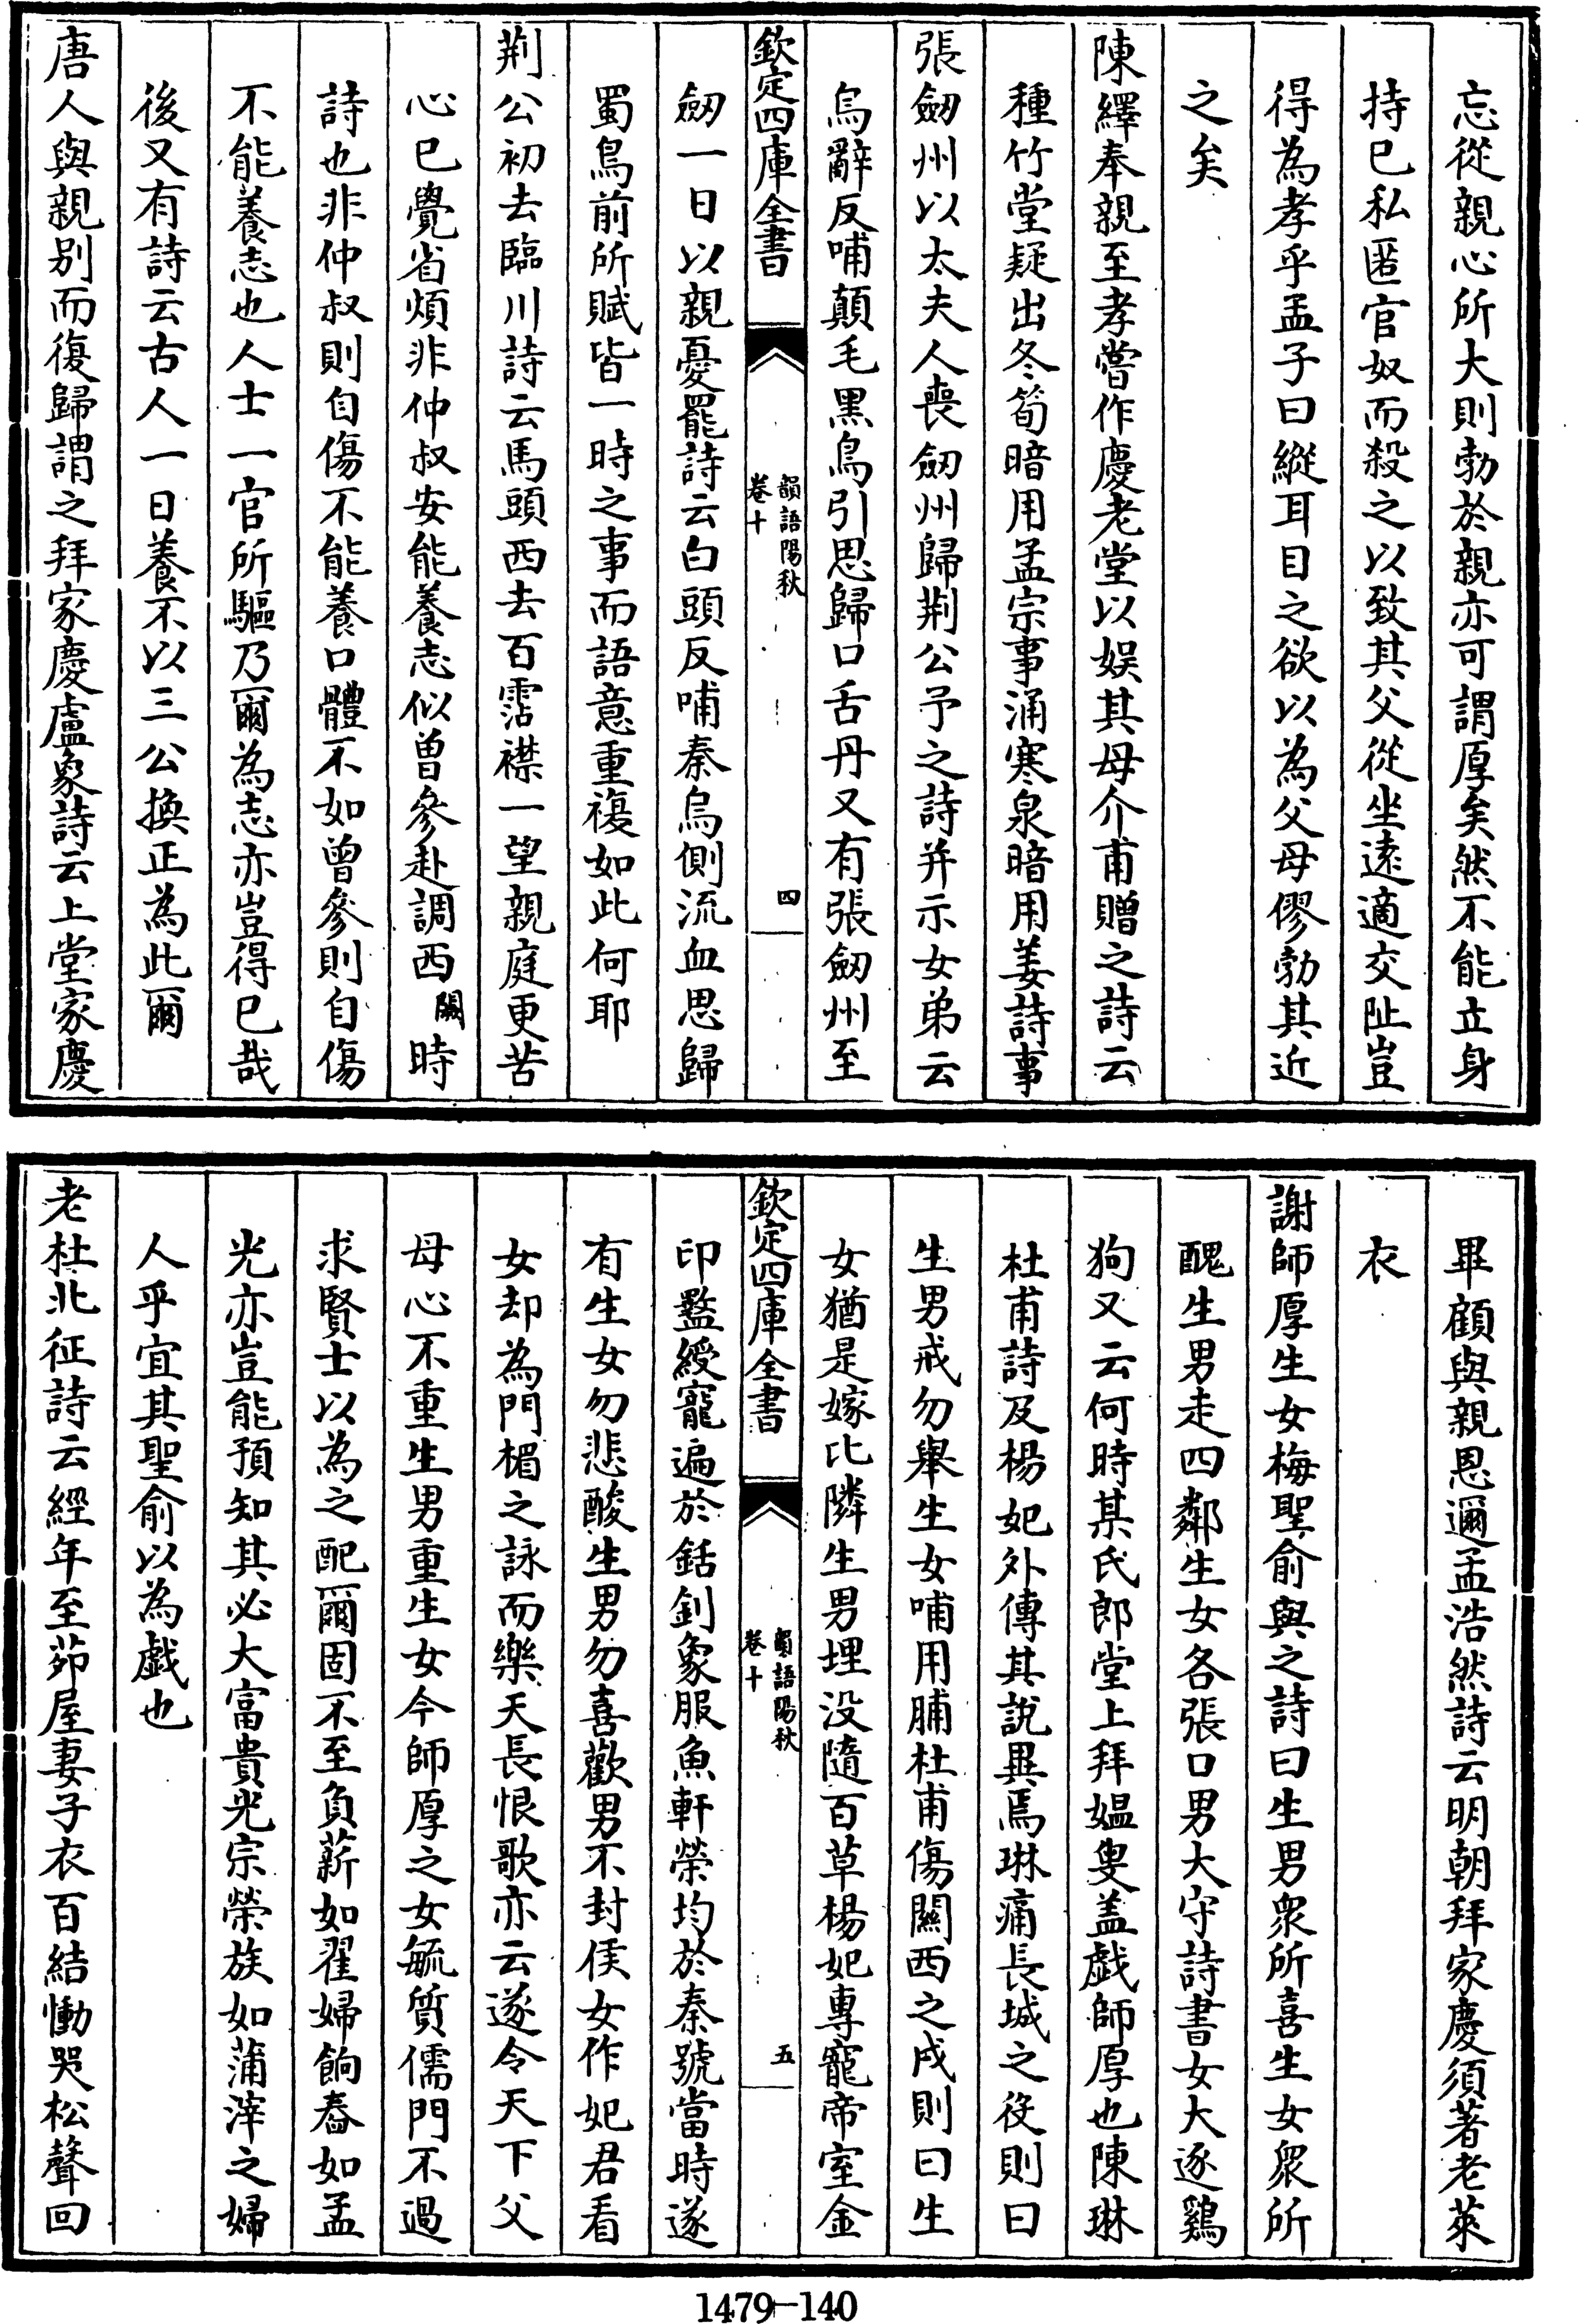 忘從親心所大則勃於親亦可謂厚矣然不能立身
持已私匿官奴而殺之以致其父從坐逺適交阯豈
得為孝乎孟子曰縱耳目之欲以為父母僇勃其近
之矣
陳繹奉親至孝嘗作慶老堂以娛其母介甫贈之詩云
種竹堂疑出冬筍暗用孟宗事涌寒泉暗用姜詩事
張劒州以太夫人喪劒州歸荆公予之詩并示女弟云
烏辭反哺顛毛黑鳥引思歸口舌丹又有張劒州至
欽定四庫全書
韻語陽秋
卷十
四
劒一日以親憂罷詩云白頭反哺秦烏側流血思歸
蜀鳥前所賦皆一時之事而語意重複如此何耶
荆公初去臨川詩云馬頭西去百霑襟一望親庭更苦
心已覺省煩非仲叔安能養志似曾參赴調西闕時
詩也非仲叔則自傷不能養口體不如曾參則自傷
不能養志也人士一官所驅乃爾為志亦豈得已哉
後又有詩云古人一日養不以三公換正為此爾
唐人與親別而復歸謂之拜家慶盧象詩云上堂家慶
畢顧與親恩邇孟浩然詩云明朝拜家慶須著老萊
衣
謝師厚生女梅聖俞與之詩曰生男衆所喜生女衆所
醜生男走四鄰生女各張口男大守詩書女大逐鷄
狗又云何時某氏郎堂上拜媪叟盖戯師厚也陳琳
杜甫詩及楊妃外傳其說異焉琳痛長城之役則曰
生男戒勿舉生女哺用脯杜甫傷關西之戍則曰生
女猶是嫁比隣生男埋没隨百草楊妃專寵帝室金
欽定四庫全書
韻語陽秋
卷十
五
印盭綬寵遍於銛釗象服魚軒榮均於秦號當時遂
有生女勿悲酸生男勿喜歡男不封侯女作妃君看
女却為門楣之詠而樂天長恨歌亦云遂令天下父
母心不重生男重生女今師厚之女毓質儒門不過
求賢士以為之配爾固不至負薪如翟婦餉舂如孟
光亦豈能預知其必大富貴光宗榮族如蒲滓之婦
人乎宜其聖俞以為戯也
老杜北征詩云經年至茆屋妻子衣百結慟哭松聲回
1479-140